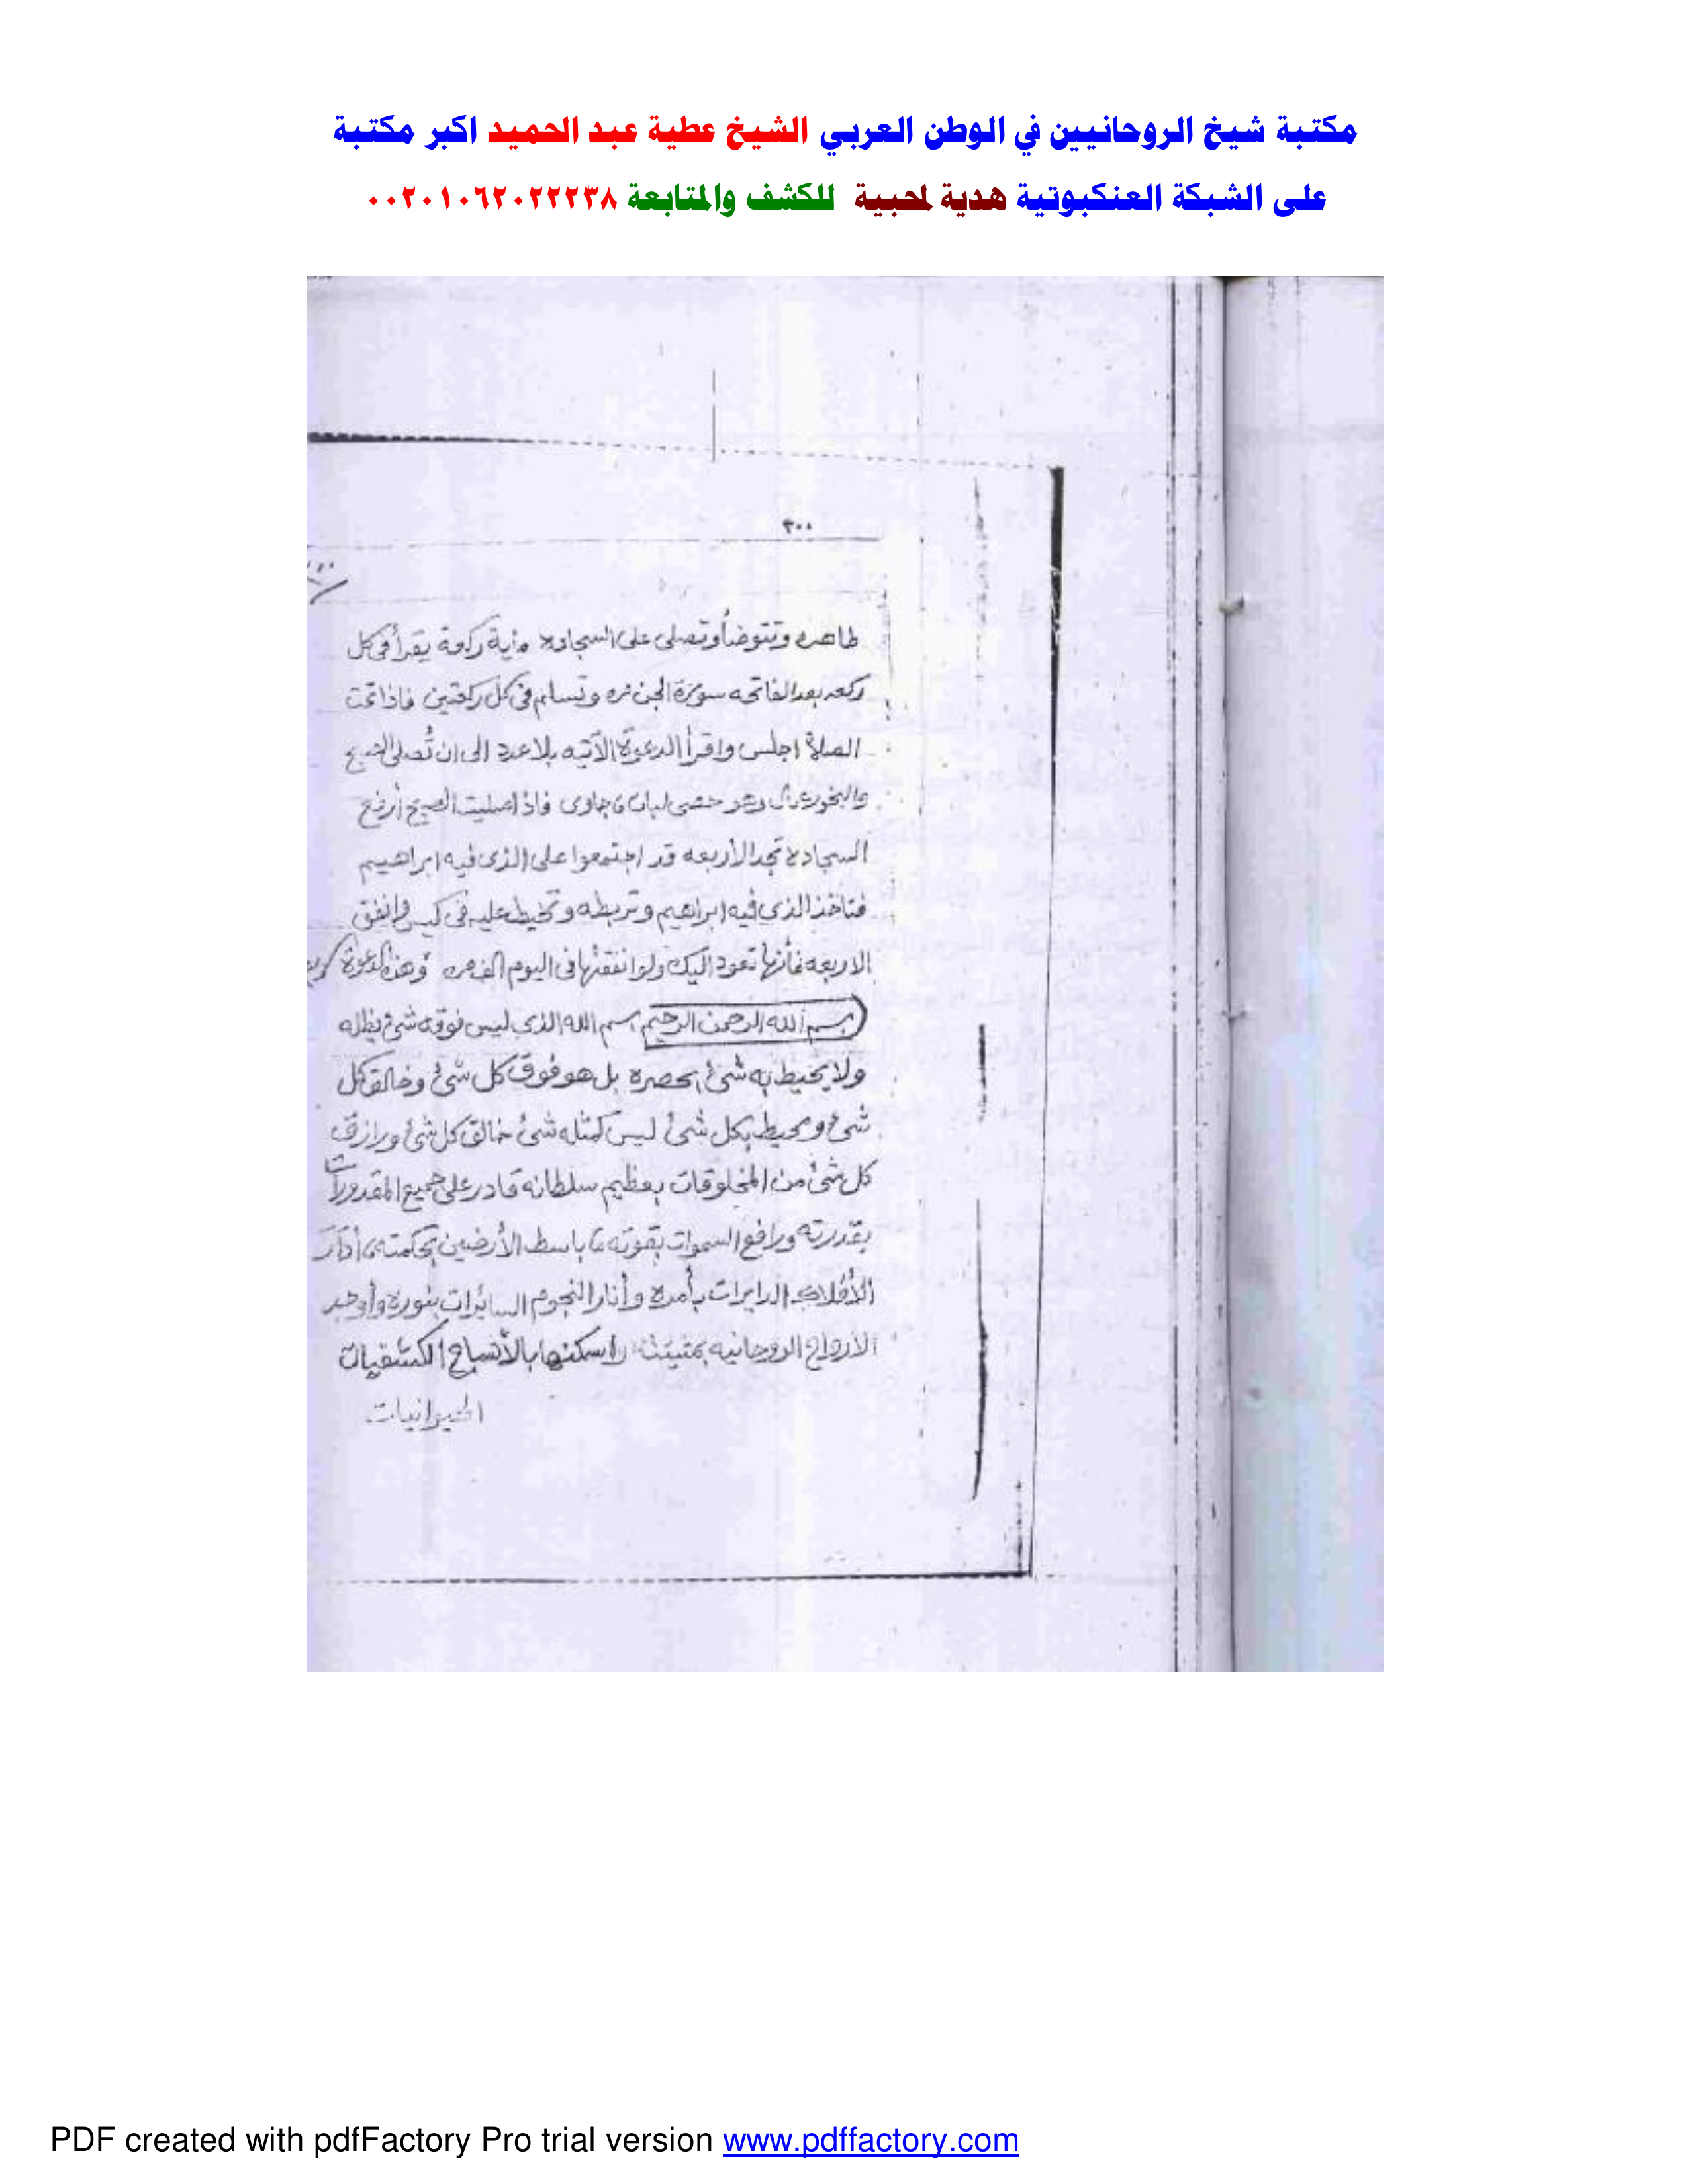 مكتبة شيخ الروحانيين في الوطن العربي الشيخ عطية عبد الحميد اكبر مكتبة
على الشبكة العنكبوتية هدية لمحبية للكشف والمتابعة ٠٠٢٠١٠٦٢٠٢٢٢٣٨
٣٠٠
طاهره وتتوضأ وتصلى على السجاده ماية ركعة يقرأ فى كل
ركعه بعد الفاتحه سورة الجن مره وتسلم فى كل ركعتين فاذا تمت
الصلاة اجلس واقرأ الدعوة الآتيه بلا عدد الى ان تُصلى الصبح
والبخور حصى لبان جاوى فاذا صليت الصبح أرفع
السجاده تجد الأربعه قد اجتمعوا على الذى فيه ابراهيم
فتاخذ الذى فيه ابراهيم وتربطه وتخيط عليه فى كيس وانفق
الاربعه فأنها تعود اليك ولو انفقتها فى اليوم الف مره وهذه الدعوة
بسم الله الرحمن الرحيم بسم الله الذى ليس فوقه شئ يظله
ولا يحيط به شئ يحصره بل هو فوق كل شئ وخالق كل
شئ ومحيط بكل شئ ليس كمثله شئ خالق كل شئ ورازق
كل شئ من المخلوقات بعظيم سلطانه قادر على جميع المقدورات
بقدرته ورافع السموات بقوته باسط الأرضين بحكمته أدَارَ
الأفلاك الدايرات بأمره وأنار النجوم السائرات بنوره وأوجد
الارواح الروحانيه بمشيئته اسكنها بالأشباح الكشفيات
الحيوانيات
PDF created with pdfFactory Pro trial version www.pdffactory.com